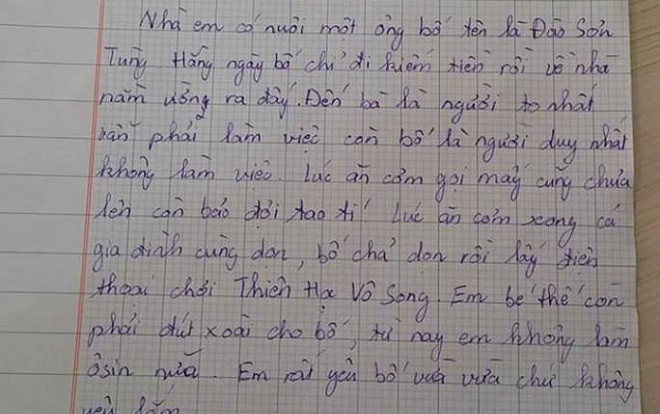 Nhà em có nuôi một ông bố tên là Đào Sơn
Tùng Hằng ngày bố chỉ đi kiếm tiền rồi về nhà
nằm ưỡng ra đấy. Đến bà là người to nhất
vẫn phải làm việc còn bố là người duy nhất
không làm việc. Lúc ăn cơm gọi mãi cũng chưa
lên còn bảo đợi tao tí! Lúc ăn cơm xong cả
gia đình cùng dọn, bố chả dọn rồi lấy điện
thoại chơi Thiên Hạ Vô Song. Em bé thế còn
phải đút xoài cho bố, từ nay em không làm
ôsin nữa. Em rất yêu bố vừa vừa chứ không
yêu lắm